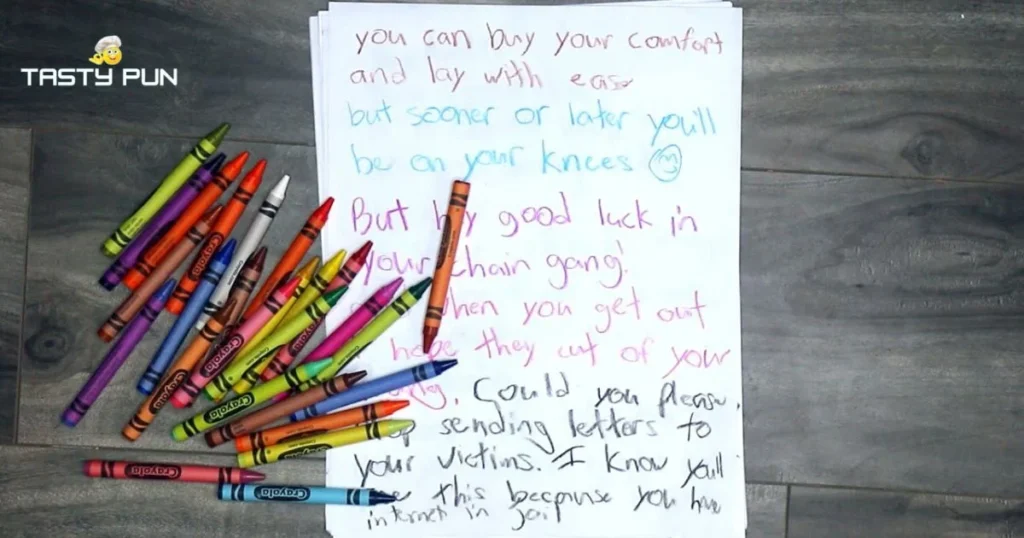 TASTY PUN
you can buy your comfort
and lay with ease
but sooner or later you'll
be on your knees
But hey good luck in
your chain gang!
when you get out
hope they cut of your
Could you please
sending letters to
your victims. I know you'll
this because you have
internet in jail
Crayola
Crayola
Crayola
Crayola
Crayola
Crayola
Crayola
Crayola